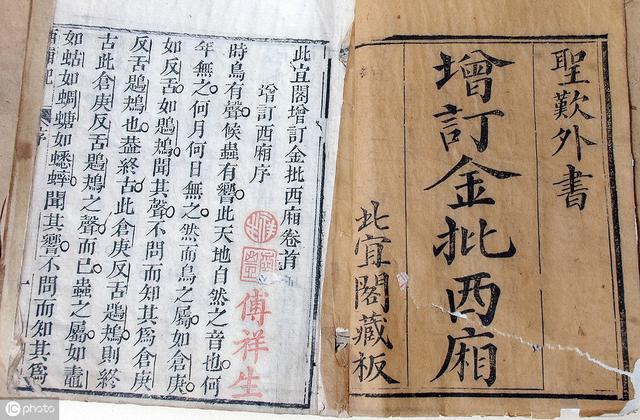 聖歎外書
增訂金批西廂
此宜閣藏板
此宜閣增訂金批西廂卷首
增訂西廂序
時鳥有聲候蟲有響此天地自然之音也何
年無之何月何日無之然而鳥之屬如倉庚
如反舌如鶗鴂聞其聲不問而知其爲倉庚
反舌鶗鴂也蓋終古此倉庚反舌鶗鴂則終
古此倉庚反舌鶗鴂之聲而已蟲之屬如鼃
如蛄如蜩螗如蟋蟀聞其響不問而知其爲
西廂記 序
傅祥生
iC photo